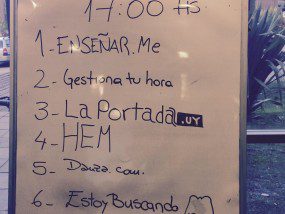 17:00 HS
1- ENSEÑAR.Me
2- Gestiona tu hora
3- La Portada.UY
4- HEM
5- Danza.com.
6- EstoyBuscando